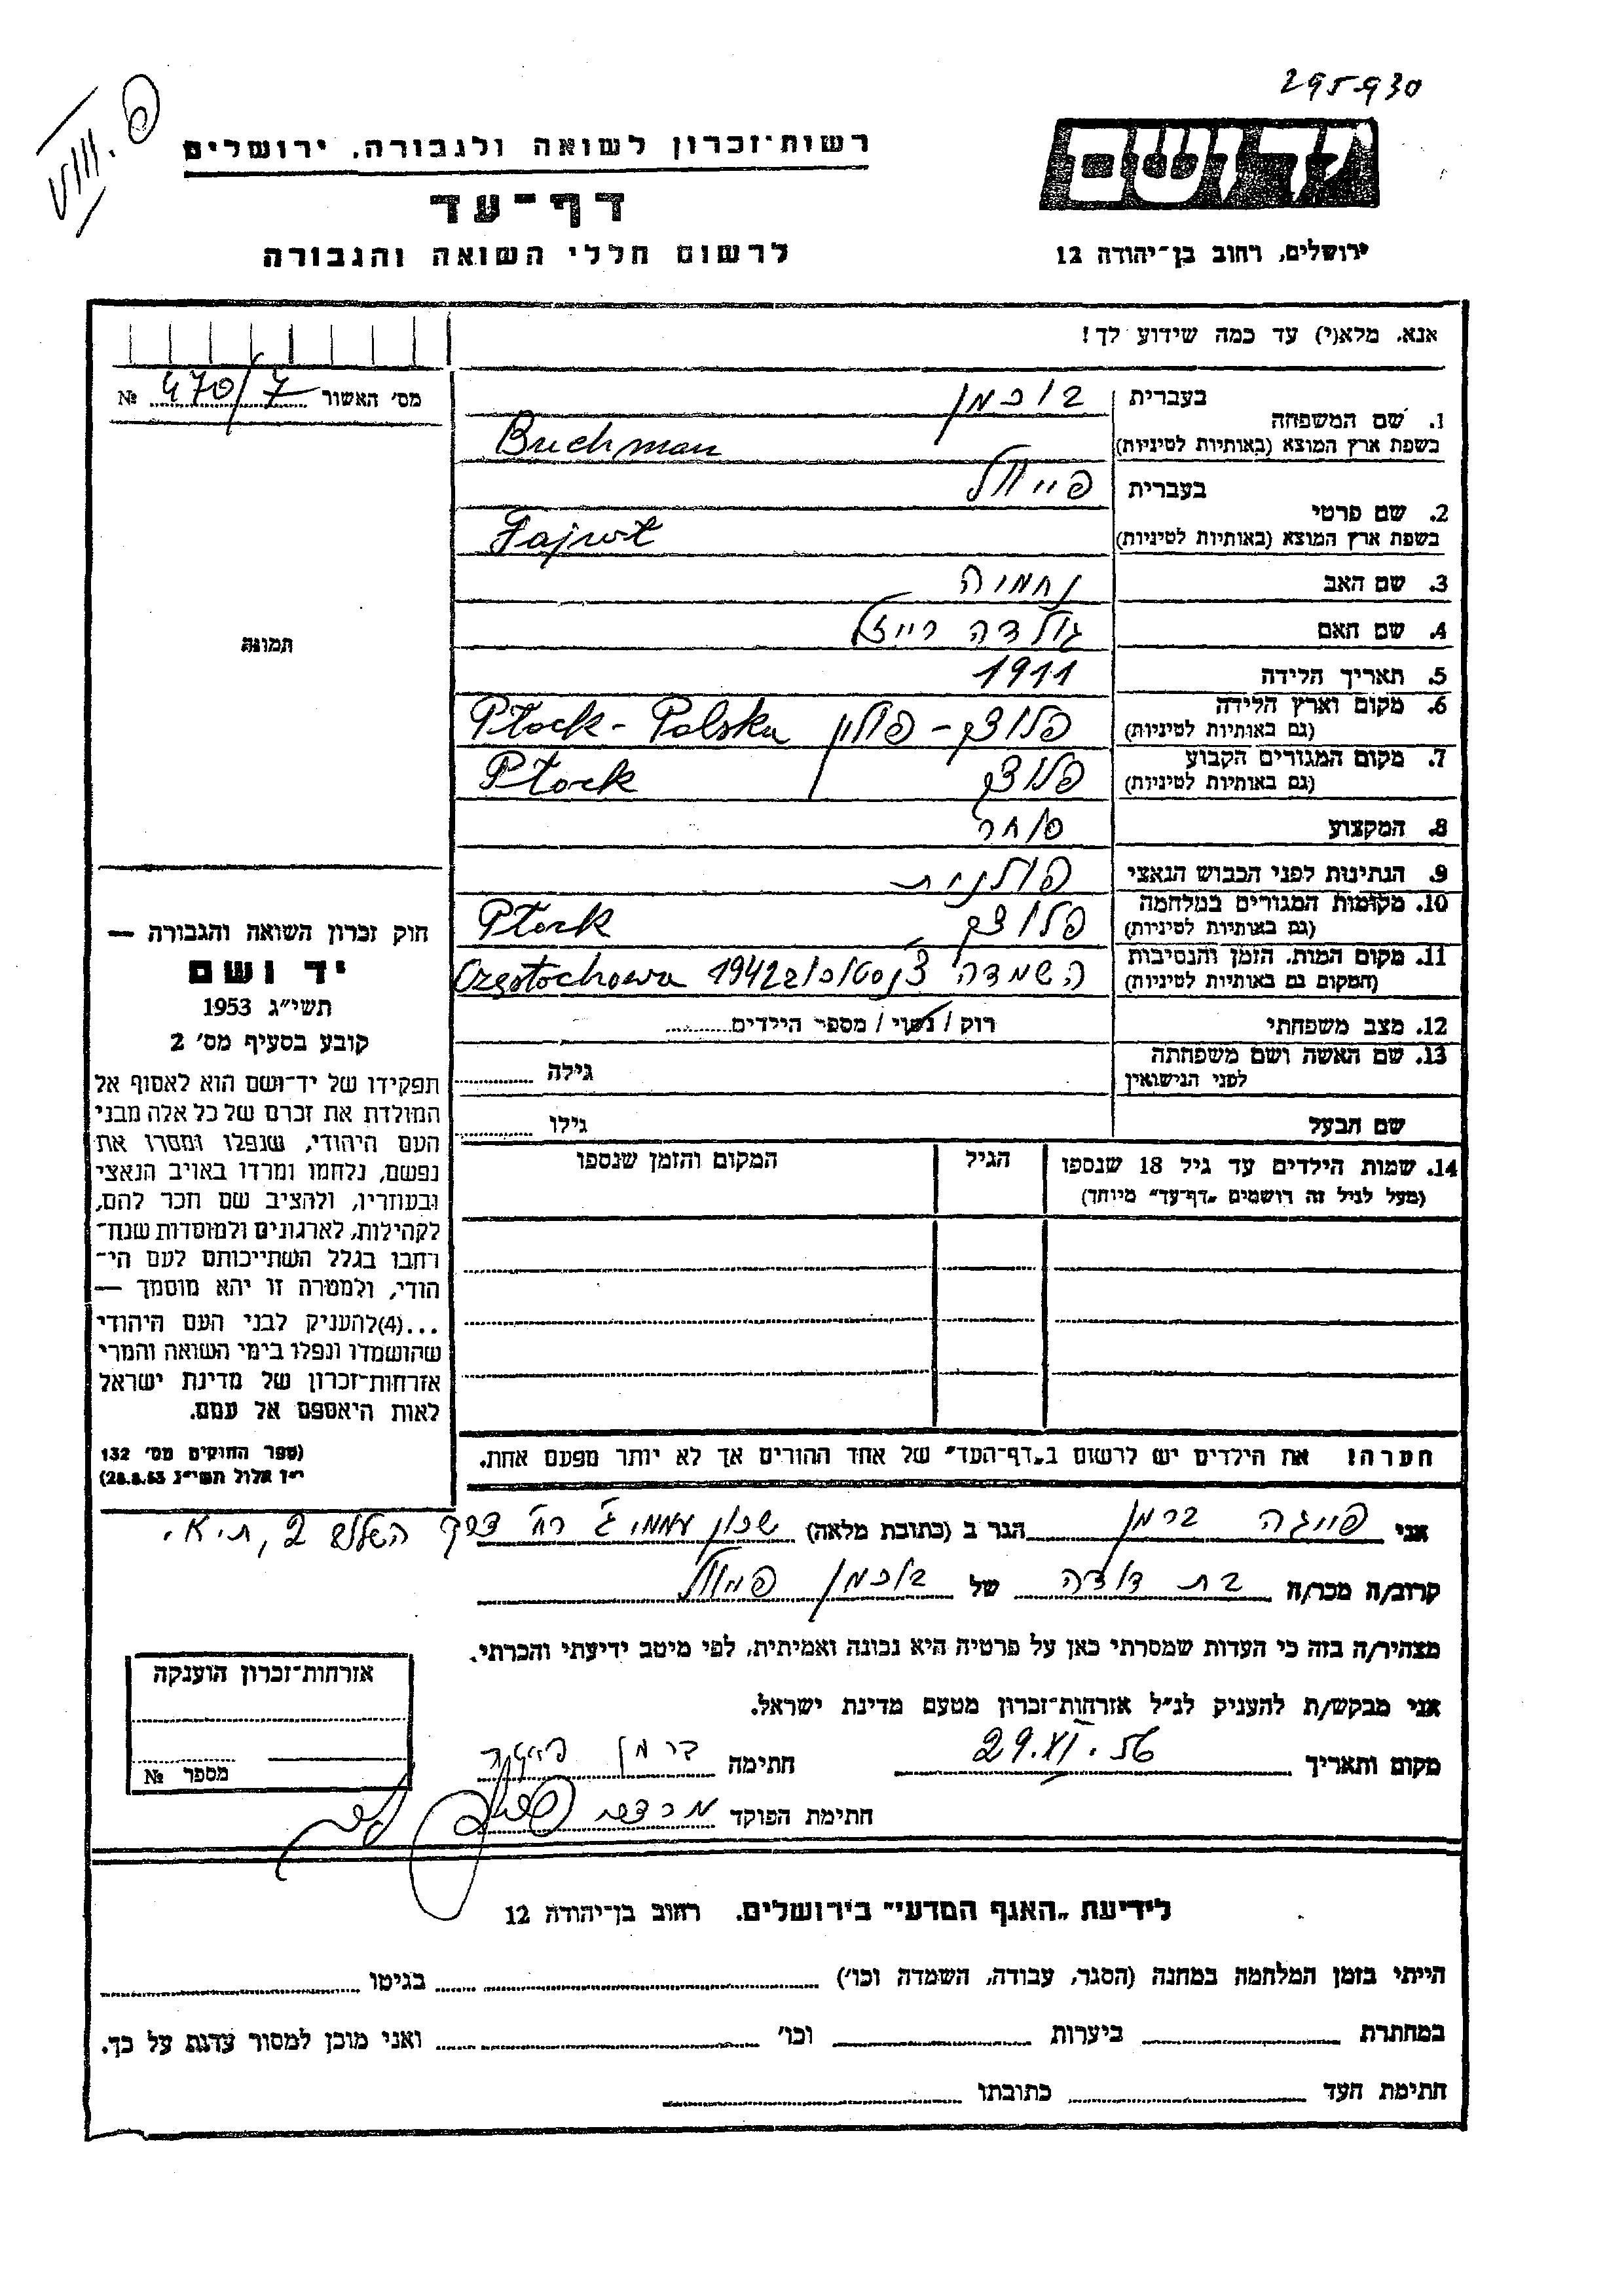 295930
פ. VIII
יד ושם
רשות־זכרון לשואה ולגבורה, ירושלים
דף־עד
ירושלים, רחוב בן־יהודה 12
לרשום חללי השואה והגבורה
אנא, מלא(י) עד כמה שידוע לך!
מס׳ האשור 470/7 №
1. שם המשפחה
בעברית בוכמן
בשפת ארץ המוצא (באותיות לטיניות) Buchman
2. שם פרטי
בעברית פייוול
בשפת ארץ המוצא (באותיות לטיניות) Fajwł
3. שם האב נחמיה
4. שם האם גולדה רייזל
5. תאריך הלידה 1911
6. מקום וארץ הלידה פלוצק - פולין Płock - Polska
(גם באותיות לטיניות)
7. מקום המגורים הקבוע פלוצק Płock
(גם באותיות לטיניות)
8. המקצוע סוחר
9. הנתינות לפני הכבוש הנאצי פולנית
10. מקומות המגורים במלחמה פלוצק Płock
(גם באותיות לטיניות)
11. מקום המות, הזמן והנסיבות השמדה 1942 Częstochowa
(המקום גם באותיות לטיניות)
12. מצב משפחתי רוק / נשוי / מספר הילדים
13. שם האשה ושם משפחתה גילה
לפני הנישואין
שם הבעל גילו
14. שמות הילדים עד גיל 18 שנספו הגיל המקום והזמן שנספו
(מעל לגיל זה רושמים „דף־עד״ מיוחד)
תמונה
חוק זכרון השואה והגבורה —
יד ושם
תשי״ג 1953
קובע בסעיף מס׳ 2
תפקידו של יד־ושם הוא לאסוף אל
המולדת את זכרם של כל אלה מבני
העם היהודי, שנפלו ומסרו את
נפשם, נלחמו ומרדו באויב הנאצי
ובעוזריו, ולהציב שם וזכר להם,
לקהילות, לארגונים ולמוסדות שנח־
רבו בגלל השתייכותם לעם הי־
הודי, ולמטרה זו יהא מוסמך —
...(4)להעניק לבני העם היהודי
שהושמדו ונפלו בימי השואה והמרי
אזרחות־זכרון של מדינת ישראל
לאות היאספם אל עמם.
(ספר החוקים מס׳ 132
י״ז אלול תשי״ג 28.8.53)
הערה! את הילדים יש לרשום ב„דף־העד״ של אחד ההורים אך לא יותר מפעם אחת.
אני פייגה ברמן הגר ב (כתובת מלאה) שכון עממי ג׳ רח׳ דרך השלש 2, ת״א.
קרוב/ה מכר/ה בת דודה של בוכמן פייוול
מצהיר/ה בזה כי העדות שמסרתי כאן על פרטיה היא נכונה ואמיתית, לפי מיטב ידיעתי והכרתי.
אני מבקש/ת להעניק לנ״ל אזרחות־זכרון מטעם מדינת ישראל.
מקום ותאריך 29.XI.56 חתימה ברמן פייגה
חתימת הפוקד מרדכי
אזרחות־זכרון הוענקה
מספר №
לידיעת „האגף המדעי״ בירושלים. רחוב בן־יהודה 12
הייתי בזמן המלחמה במחנה (הסגר, עבודה, השמדה וכו׳) בגיטו
במחתרת ביערות וכו׳ ואני מוכן למסור עדות על כך.
חתימת העד כתובתו